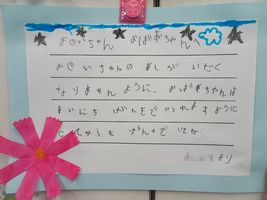 おじいちゃん おばあちゃん
おじいちゃんの あしが いたく
なりませんように。おばあちゃんは
まいにち げんきで いられますように
これからも げんきで いてね
より